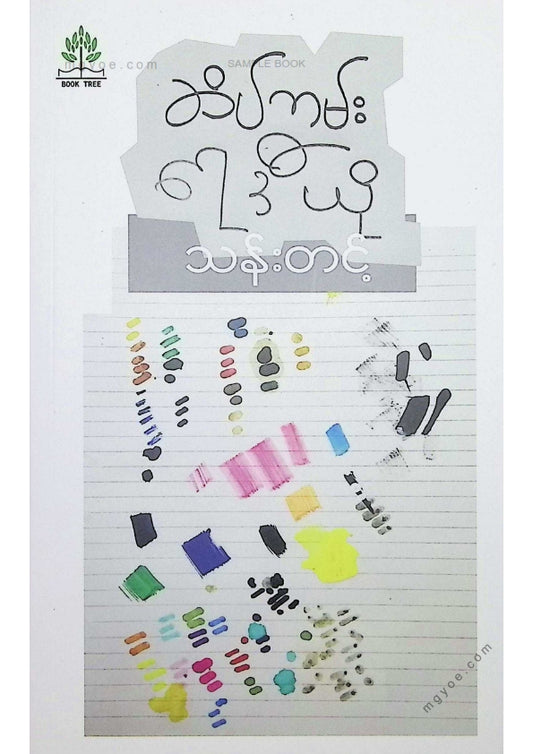 mgyoe.com
SAMPLE BOOK
BOOK TREE
ဆိပ်ကမ်း
ရဲဒိုယို
သန်းတင့်
mgyoe.com